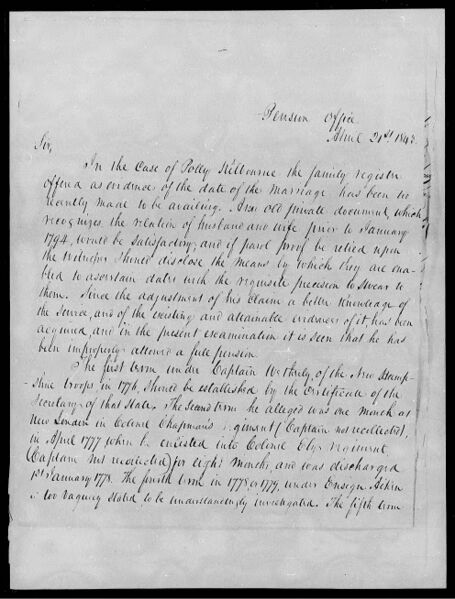 Pension Office
April 21st 1843.
Sir,
In the Case of Polly Kilbourne the family register
offered as evidence of the date of the marriage has been too
recently made to be availing. Any old private document, which
recognizes the relation of husband and wife prior to January
1794, would be satisfactory, and if parol proof be relied upon
the witnesses should disclose the means by which they are ena-
bled to ascertain dates with the requisite precision to swear to
them. Since the adjustment of his claim a better knowledge of
the service, and of the existing and attainable evidences of it, has been
acquired and in the present examination it is seen that he has
been improperly allowed a full pension.
The first term under Captain of the New Hamp-
shire troops, in 1776, should be established by the Certificate of the
Secretary of that State. The Second term he alleged was one month at
New London in Colonel Chapman's regiment (Captain not recollected),
in April 1777 when he enlisted into Colonel Ely's regiment,
(Captain not recollected) for eight months, and was discharged
1st January 1778. The fourth term in 1778 or 1779, under Ensign
is too vaguely stated to be understandingly investigated. The fifth term